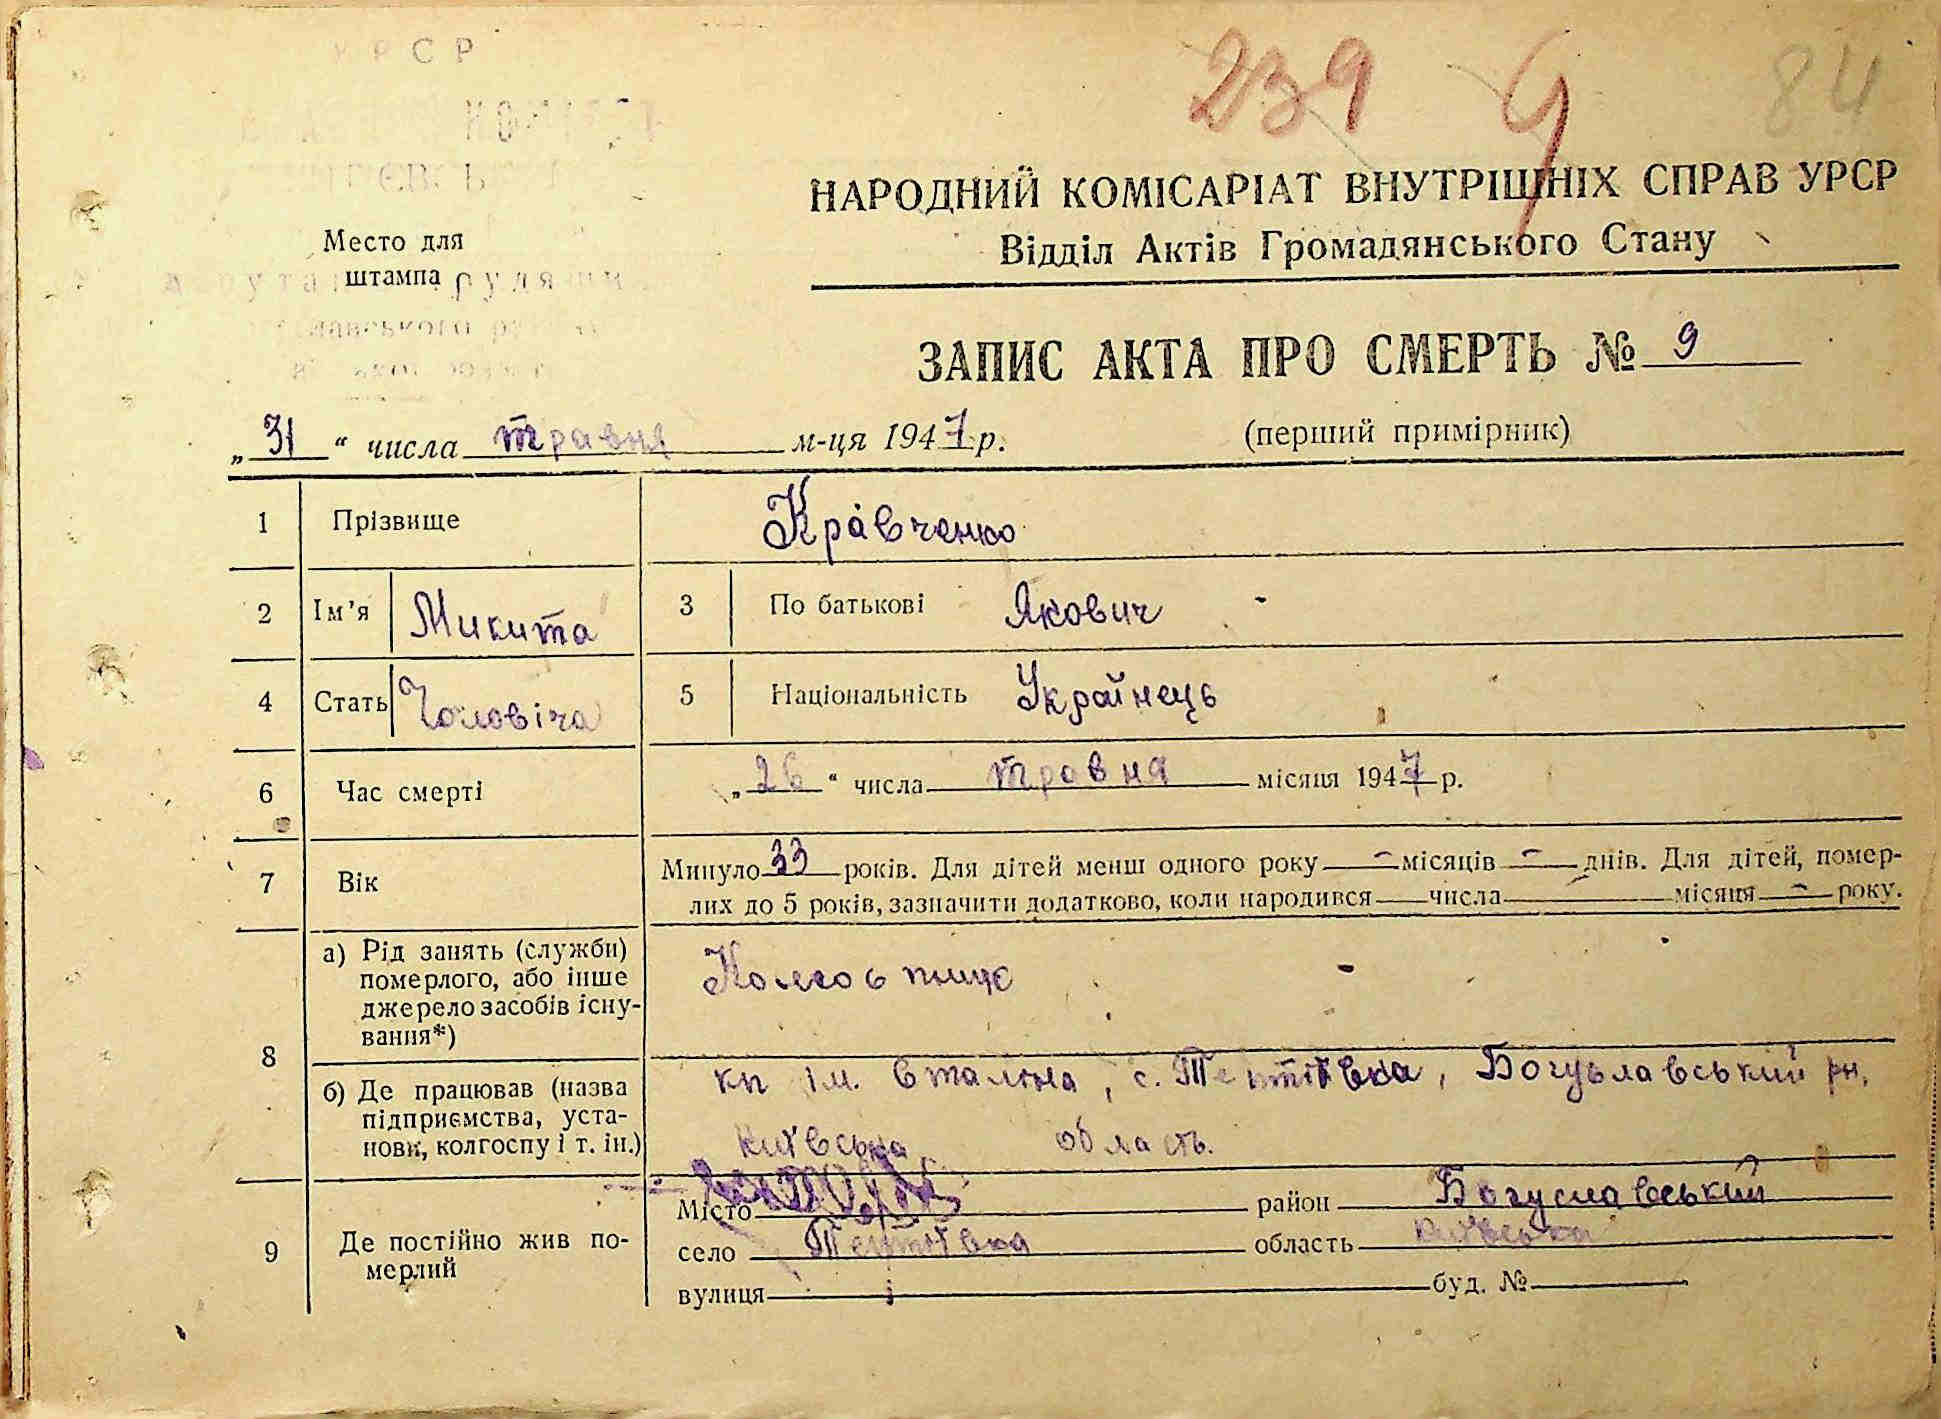 239 9 84
УРСР
Место для
штампа
НАРОДНИЙ КОМІСАРІАТ ВНУТРІШНІХ СПРАВ УРСР
Відділ Актів Громадянського Стану
ЗАПИС АКТА ПРО СМЕРТЬ № 9
„31“ числа травня м-ця 1947 р. (перший примірник)
1 Прізвище Кравченко
2 Ім'я Микита 3 По батькові Якович
4 Стать Чоловіча 5 Національність Українець
6 Час смерті „26“ числа травня місяця 1947 р.
7 Вік Минуло 33 років. Для дітей менш одного року — місяців — днів. Для дітей, помер-
лих до 5 років, зазначити додатково, коли народився — числа — місяця — року.
8 а) Рід занять (служби)
померлого, або інше
джерело засобів існу-
вання*)
Колгоспн
б) Де працював (назва
підприємства, уста-
нови, колгоспу і т. ін.)
кп ім. Сталіна, с. Тептіївка, Богуславський рн,
Київська область.
9 Де постійно жив по-
мерлий
Місто район Богуславський
село Тептіївка область Київська
вулиця буд. №